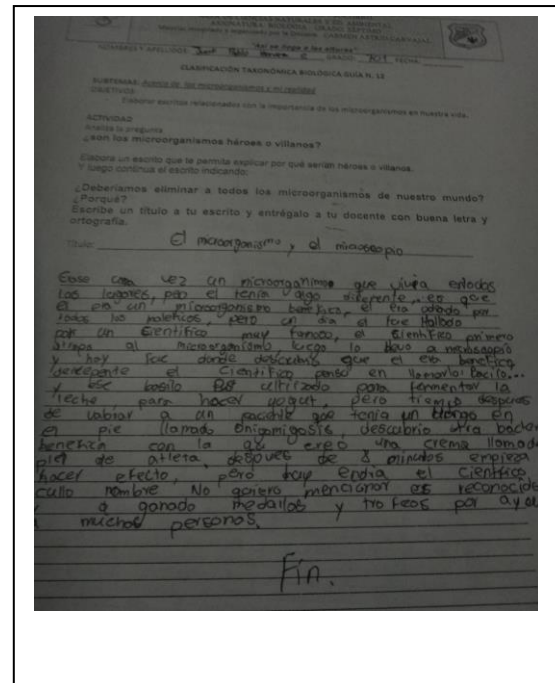 CIENCIAS NATURALES Y ED. AMBIENTAL
ASIGNATURA: BIOLOGIA GRADO SEPTIMO
CARMEN
"Así se llega a las alturas"
NOMBRES Y APELLIDOS: GRADO: 701 FECHA:
CLASIFICACIÓN TAXONÓMICA BIOLÓGICA GUÍA N. 16
SUBTEMAS: Acerca de los microorganismos y mi realidad
OBJETIVOS:
Elaborar escritos relacionados con la importancia de los microorganismos en nuestra vida.
ACTIVIDAD
Analiza la pregunta
¿son los microorganismos héroes o villanos?
Elabora un escrito que te permita explicar por qué serían héroes o villanos.
Y luego continua el escrito indicando:
¿Deberíamos eliminar a todos los microorganismos de nuestro mundo?
¿Porqué?
Escribe un titulo a tu escrito y entrégalo a tu docente con buena letra y
ortografía.
Titulo: El microorganismo, el microscopio
vez un microorganimos que vivia entodos
los lugares, pero el tenia algo diferente, es que
el era un microorganismo benefico, el era odiado por
todos los maleficos, pero un dia el fue hallado
por un cientifico muy famoso, el cientifico primero
atrapo al microorganismo luego lo llevo a microscopio
y hoy fue donde descubrio que el era benefico,
derrepente el cientifico penso en llamarlo: Bacilo...
y ese basilo fue ultilizado para fermentar la
lleche, para hacer yogurt, pero tiempo despues
de a un paciente que tenia un hongo en
el pie llamado Onigomigosis, descubrio otra
benefica con la creó una crema llamada
pie de atleta, despues de 8 minutos empieza
hacer efecto, pero hoy endia el cientifico
cullo nombre No quiero mencionar es reconocido
a ganado medallas y trofeos por
muchas personas.
Fin.